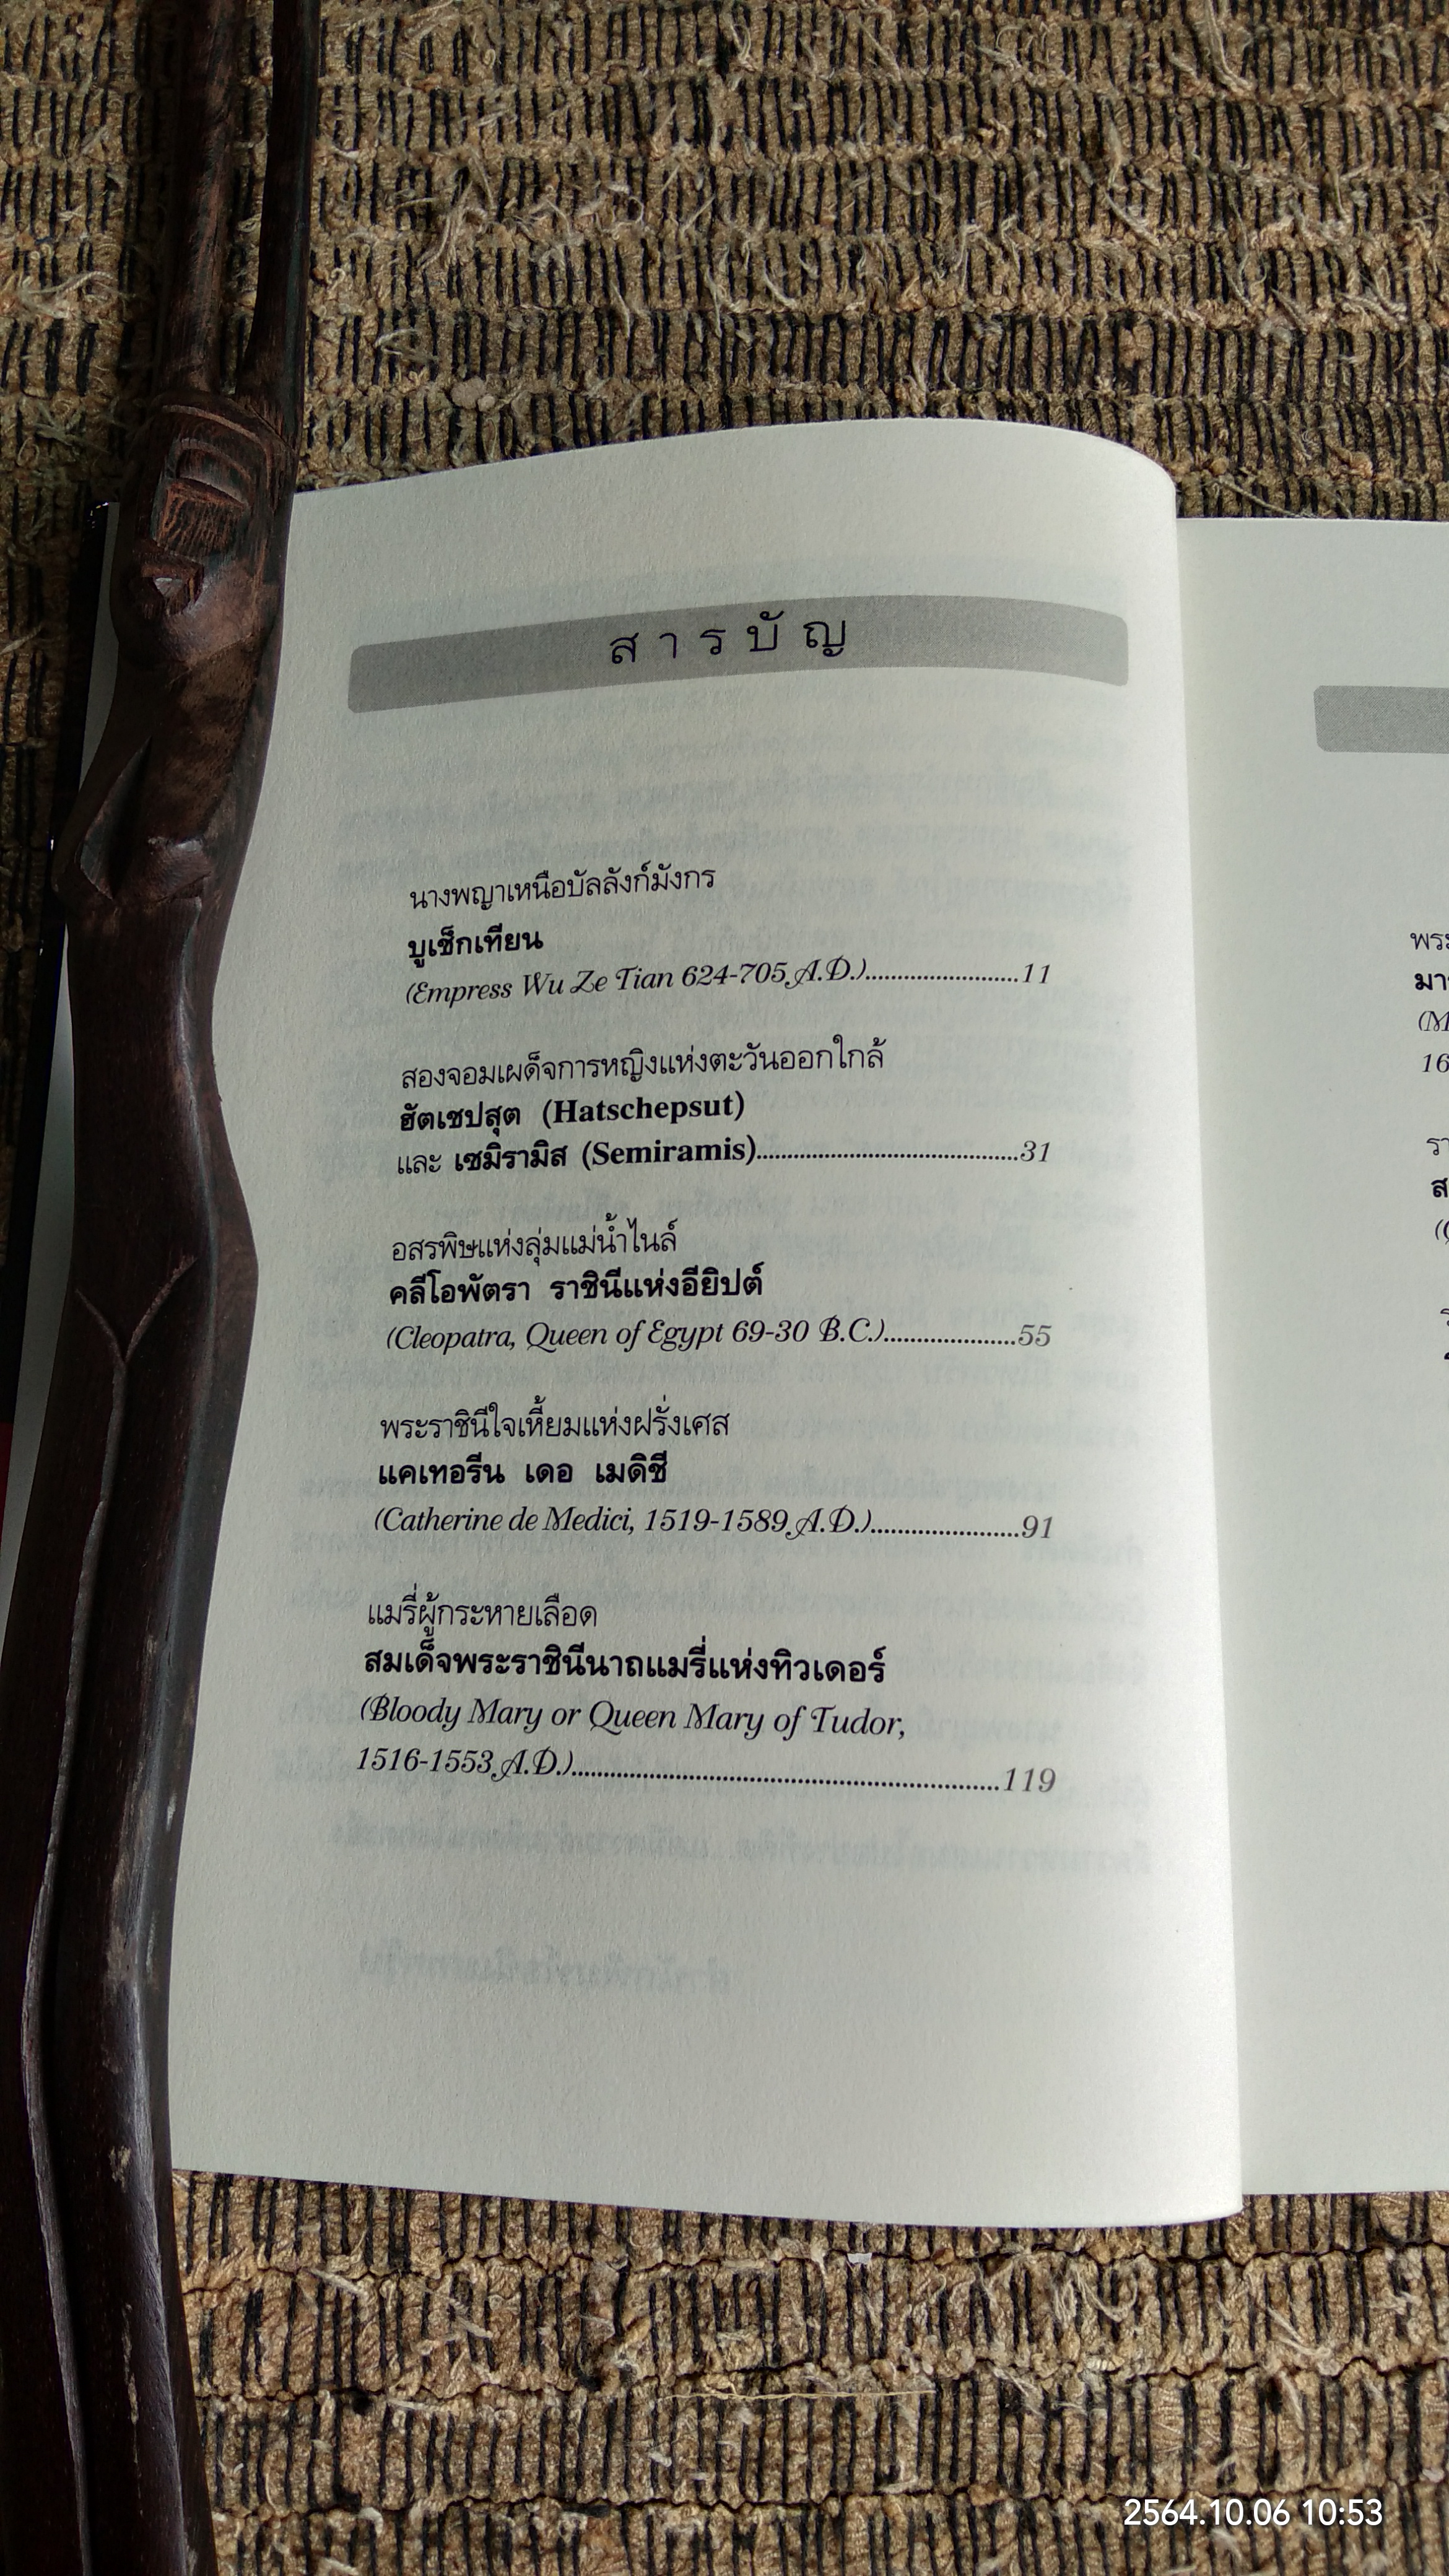 สารบัญ
นางพญาเหนือบัลลังก์มังกร
บูเช็กเทียน
(Empress Wu Ze Tian 624-705 A.D.)........................11
สองจอมเผด็จการหญิงแห่งตะวันออกใกล้
ฮัตเชปสุต (Hatschepsut)
และ เซมิรามิส (Semiramis)..........................................31
อสรพิษแห่งลุ่มแม่น้ำไนล์
คลีโอพัตรา ราชินีแห่งอียิปต์
(Cleopatra, Queen of Egypt 69-30 B.C.)....................55
พระราชินีใจเหี้ยมแห่งฝรั่งเศส
แคเทอรีน เดอ เมดิชี
(Catherine de Medici, 1519-1589 A.D.).......................91
แมรี่ผู้กระหายเลือด
สมเด็จพระราชินีนาถแมรี่แห่งทิวเดอร์
(Bloody Mary or Queen Mary of Tudor,
1516-1553 A.D.)..................................................................119
พระ
มา
(M
16
รา
ส
2564.10.06 10:53